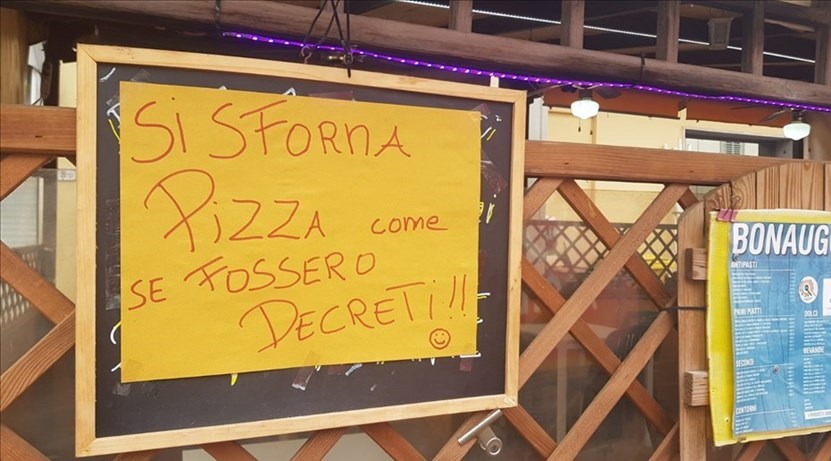 Si SFORNA
PiZZA come
SE FOSSERO
DECRETi!!
BONAUG
ANTIPASTI
PRIMI PIATTI
SECONDI
CONTORNI
DOLCI
BEVANDE